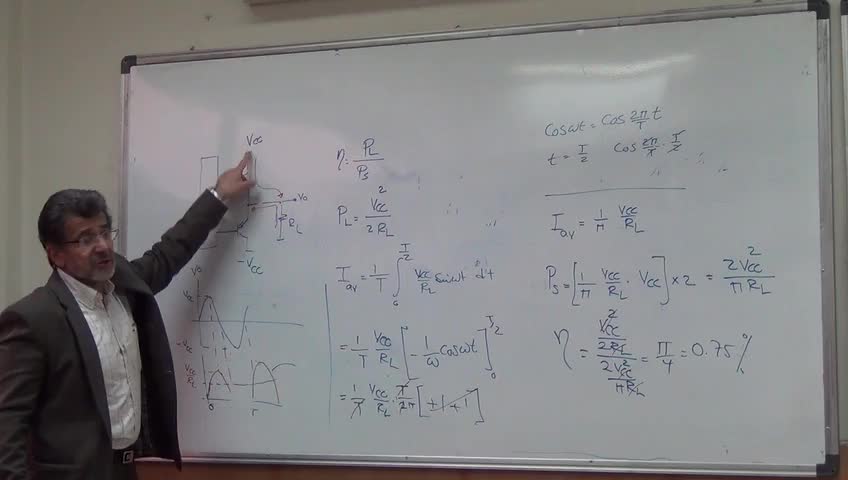 Vcc
Vo
RL
-Vcc
Vo
Vcc
-Vcc
Vcc/RL
0 T
η = PL/Ps
PL = Vcc²/2RL
Iav = 1/T ∫₀^(T/2) Vcc/RL sinωt dt
= 1/T Vcc/RL [-1/ω cosωt]₀^(T/2)
= 1/T Vcc/RL · T/2π [±1+1]
Cosωt = Cos 2π/T t
t = T/2 Cos 2π/T · T/2
Iav = 1/π Vcc/RL
Ps = [1/π Vcc/RL · Vcc] × 2 = 2Vcc²/πRL
η = (Vcc²/2RL)/(2Vcc²/πRL) = π/4 = 0.75 %